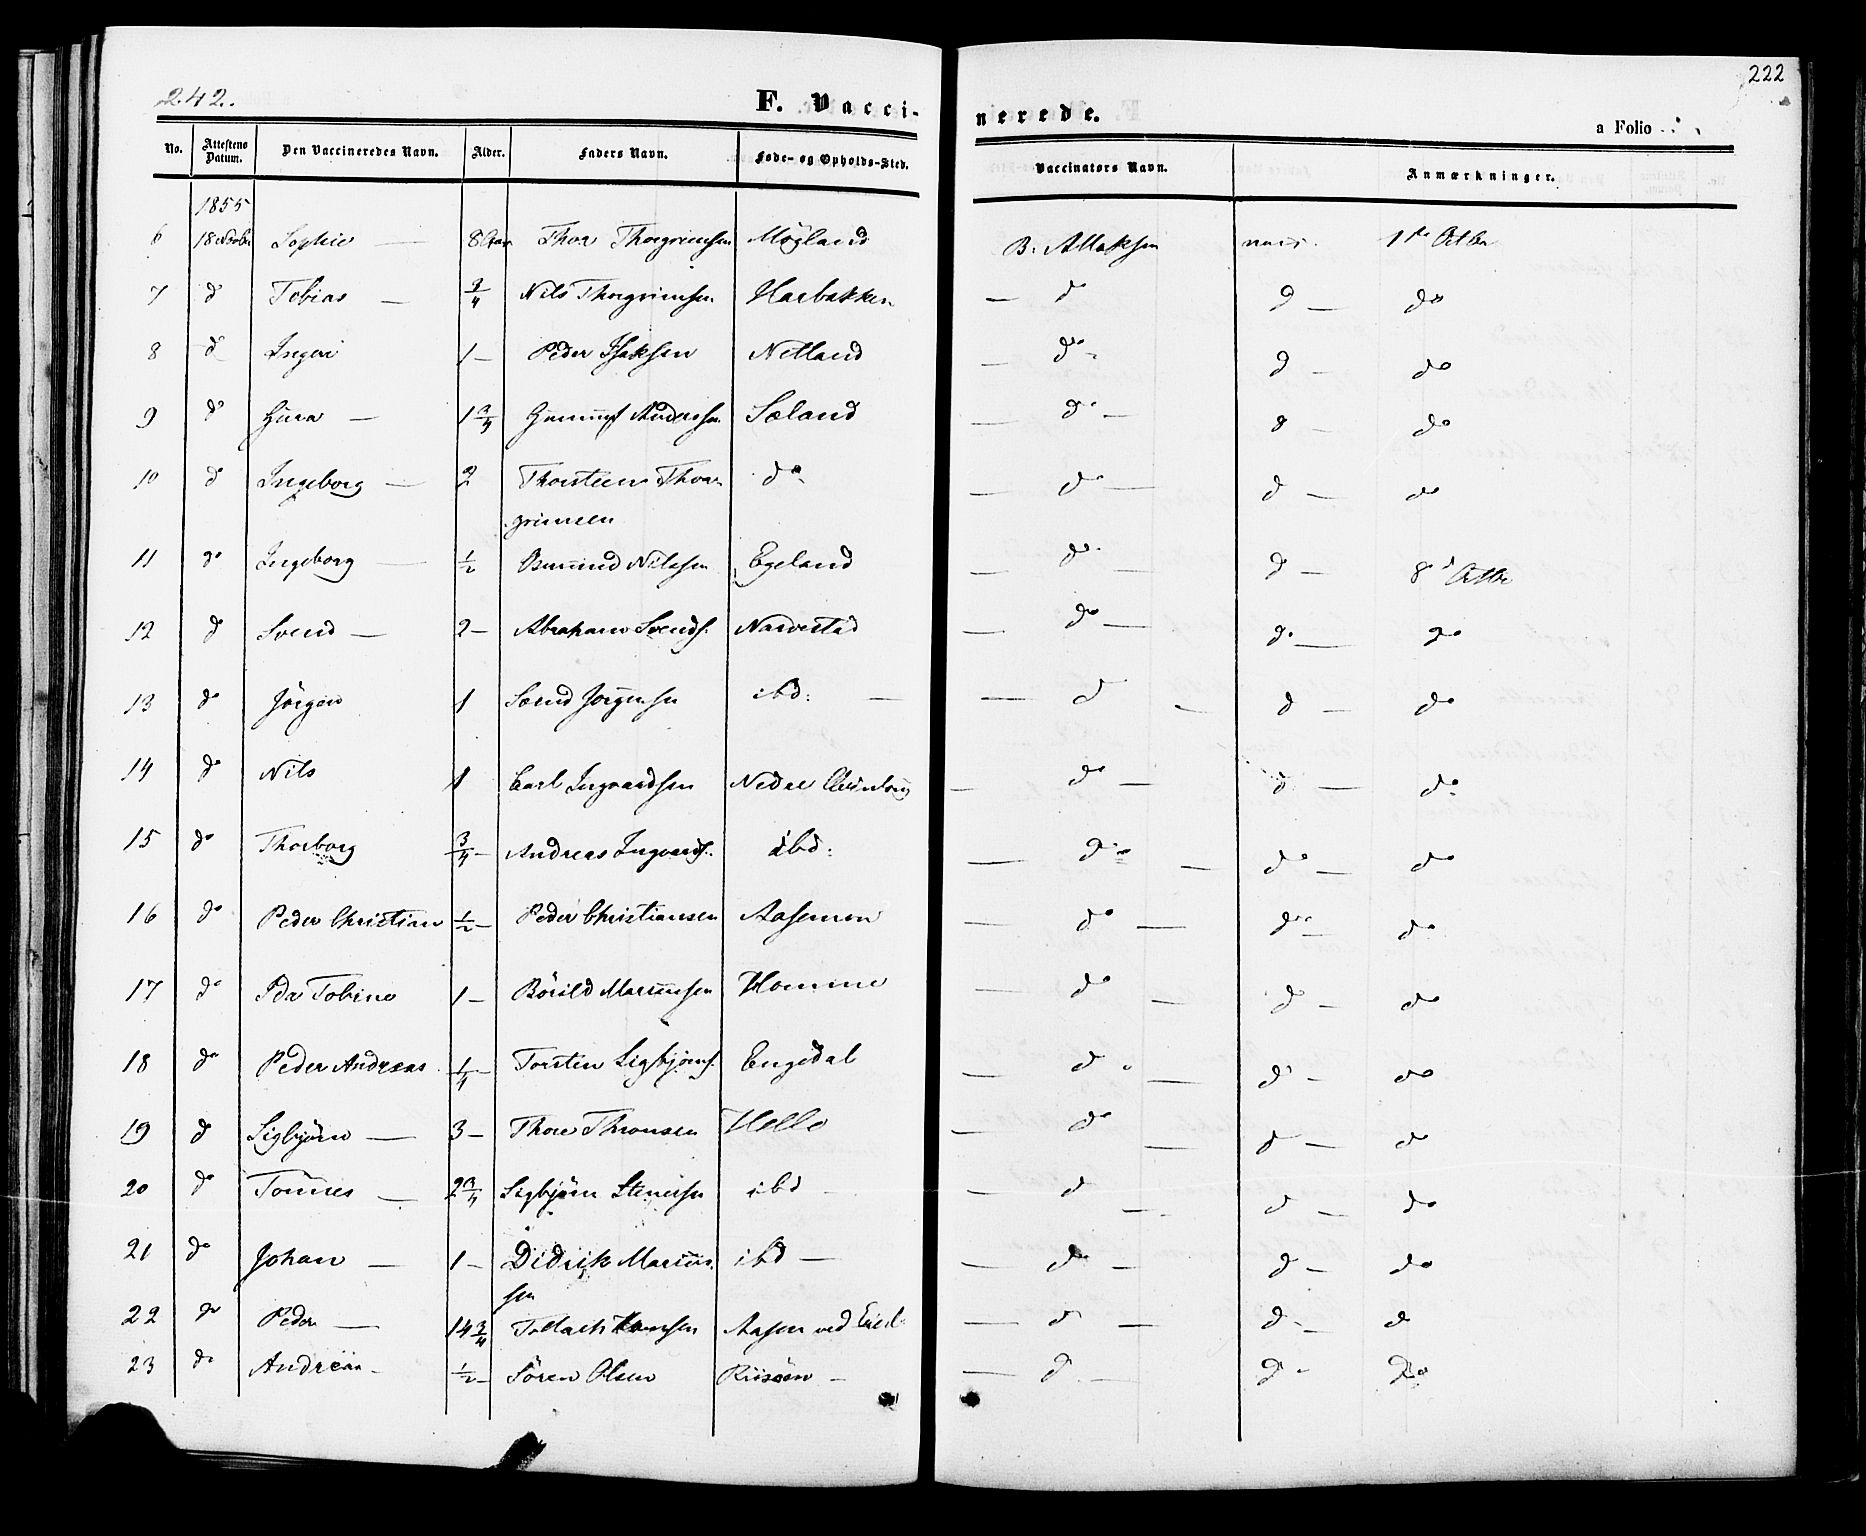 242.
222
F. Vacci-
nerede.
a Folio
No. Attestens Datum. Den Vaccineredes Navn. Alder. Faders Navn. Føde- og Opholds-Sted. Vaccinators Navn. Anmærkninger.
1855
6 18 Sophie — 8 Aar Thor Thorgrimsen Mögland B: Allaksen 1ste Octbr
7 do Tobias — 3/4 Nils Thorgrimsen Harbakken — do do — do
8 do Ingeri 1 — Peder Isaksen Netland — do do — do
9 do Gura — 1 3/4 Gunnuf Anderssen Sæland — do — do — do
10 do Ingeborg — 2 Thorsteen Thor- do — do — do — do
grimsen
11 do Ingeborg — 1/2 Osmund Nilssen Egeland — do — do — 8de Octbr
12 do Svend — 2 — Abraham Svends. Narvestad — do — do — do
13 do Jörgen 1 Svend Jörgensen ibd: — — do — do — do
14 do Nils 1 Carl Ingvardsen Nedre — do — do — do
15 do Thorborg 3/4 — Andreas Ingvards. ibd: — do — do — do
16 do Peder Christian 1/2 — Peder Christiansen Aasemon — do — do — do
17 do Ida Tobine 1 — Börild Mariussen Homme — do — do — do
18 do Peder Andreas 1/4 — Torsten Sigbjörns. Engedal — do — do — do
19 do Sigbjörn — 3 — Thore Thronsen Helle — do — do — do
20 do Tönnes — 2 3/4 Sigbjörn Stenersen ibd — — do — do — do
21 do Johan — 1 — Didrik Marius- ibd — — do — do — do
sen
22 do Peder — 14 3/4 Tallach Hansen Aasen ved — do — do — do
23 do Andreas — 1/2 — Sören Olsen Riisöen — — do — do do